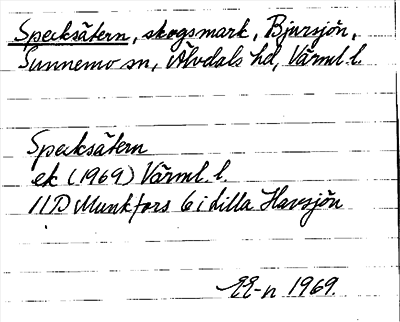 Specksätern, skogsmark, Bjursjön,
Sunnemo sn, Älvdals hd, Värml. l.
Specksätern
ek (1969) Värml. l.
11 D Munkfors 6 i Lilla Havsjön
EE-n 1969.